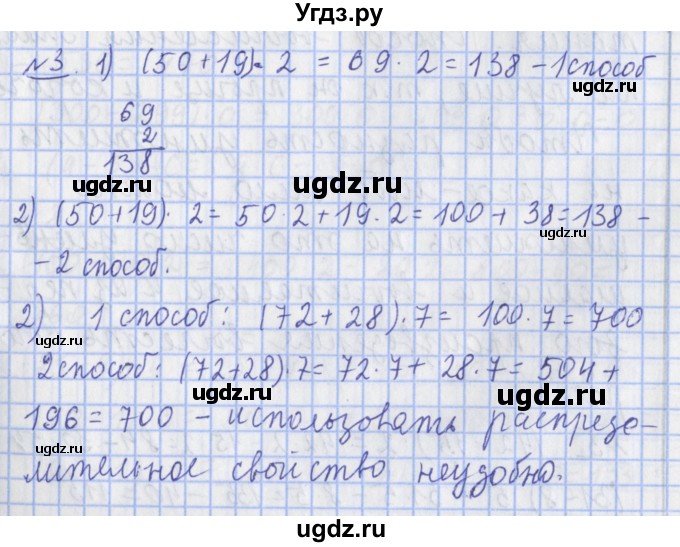 Угдз.ру
№3 1) (50+19)·2 = 69·2 = 138 – 1 способ
69
2
138
2) (50+19)·2 = 50·2 + 19·2 = 100 + 38 = 138 –
– 2 способ.
2) 1 способ: (72+28)·7 = 100·7 = 700
2 способ: (72+28)·7 = 72·7 + 28·7 = 504 +
196 = 700 – использовать распреде-
лительное свойство неудобно.
ugdz.ru
ugdz.ru
ugdz.ru
ugdz.ru
ugdz.ru
ugdz.ru
ugdz.ru
ugdz.ru
ugdz.ru
ugdz.ru
ugdz.ru